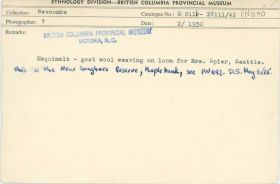 ETHNOLOGY DIVISION—BRITISH COLUMBIA PROVINCIAL MUSEUM
Collection: Newcombe Catalogue No.: E 811b- XVIII/42 PN11740
Photographer: ? Date: 2/1930
Remarks: BRITISH COLUMBIA PROVINCIAL MUSEUM
VICTORIA, B. C.
Esquimalt - goat wool weaving on loom for Mrs. Spier, Seattle.
This is the New Songhees Reserve, Maplebank, see PN 1142. D.S. May